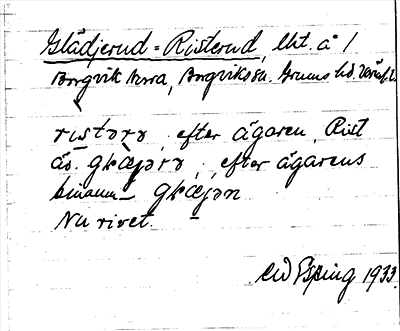 Glädjerud = Risterud, lht. å /
Borgvik Norra, Borgviks sn. Grums hd. Värml.
rɪstərə, efter ägaren, Rist
äv. gɫæjərə, efter ägarens
binamn gɫæjən
Nu rivet.
Esping 1933.